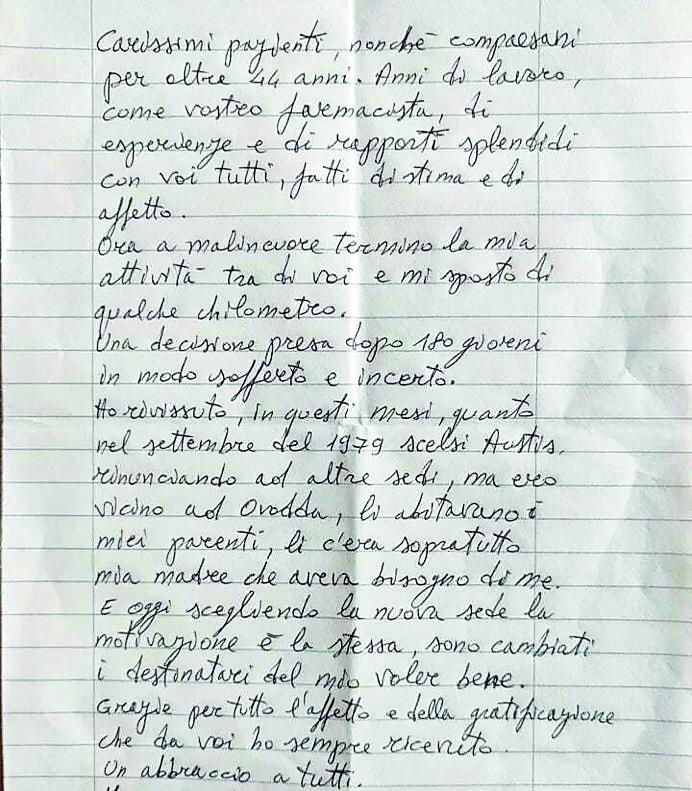 Carissimi pazienti, nonchè compaesani
per oltre 44 anni. Anni di lavoro,
come vostro farmacista, di
esperienze e di rapporti splendidi
con voi tutti, fatti di stima e di
affetto.
Ora a malincuore termino la mia
attività tra di voi e mi sposto di
qualche chilometro.
Una decisione presa dopo 180 giorni
in modo sofferto e incerto.
Ho rivissuto, in questi mesi, quanto
nel settembre del 1979 scelsi Austis,
rinunciando ad altre sedi, ma ero
vicino ad Ovodda, li abitavano i
miei parenti, li c'era sopratutto
mia madre che aveva bisogno di me.
E oggi scegliendo la nuova sede la
motivazione è la stessa, sono cambiati
i destinatari del mio voler bene.
Grazie per tutto l'affetto e della gratificazione
che da voi ho sempre ricevuto.
Un abbraccio a tutti.